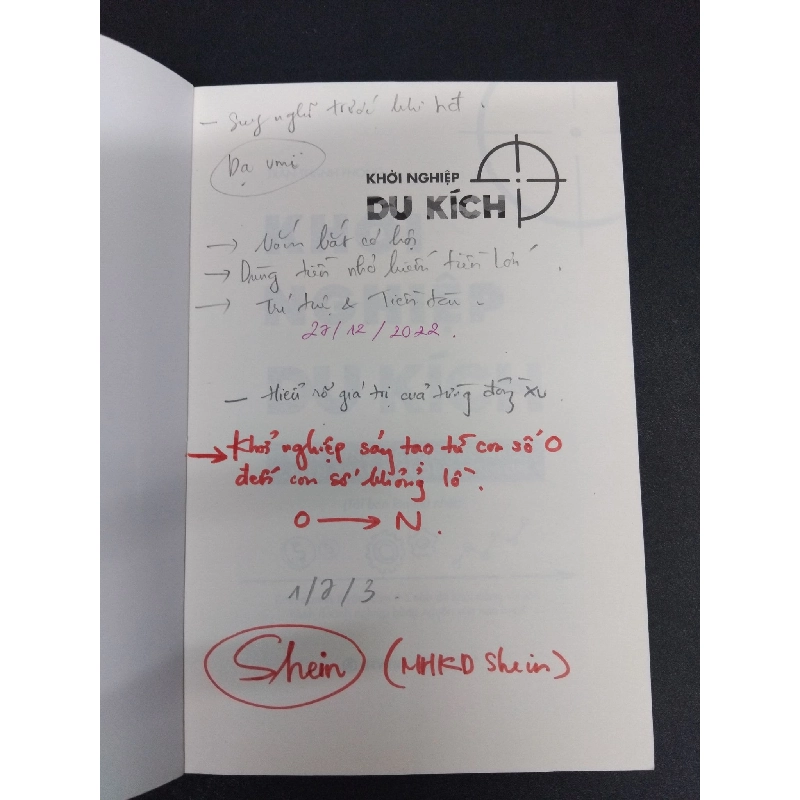 - Suy nghĩ trước khi hết.
KHỞI NGHIỆP
DU KÍCH
→ Nắm bắt cơ hội
→ Dùng tiền nhỏ kiếm tiền lớn.
→ Trí tuệ & Tiền
27/12/2022.
- Hiểu rõ giá trị của từng đồng xu
→ Khởi nghiệp sáng tạo từ con số 0
đến con số khổng lồ.
0 → N.
1/7/3.
Shein (MHKD Shein)